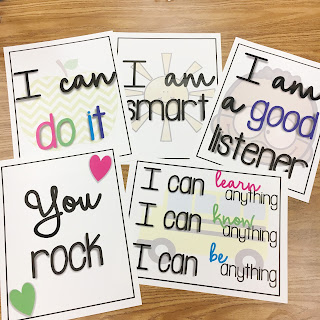 I can
do it
I am
smart
I am
a good
listener
You
rock
I can learn anything
I can know anything
I can be anything